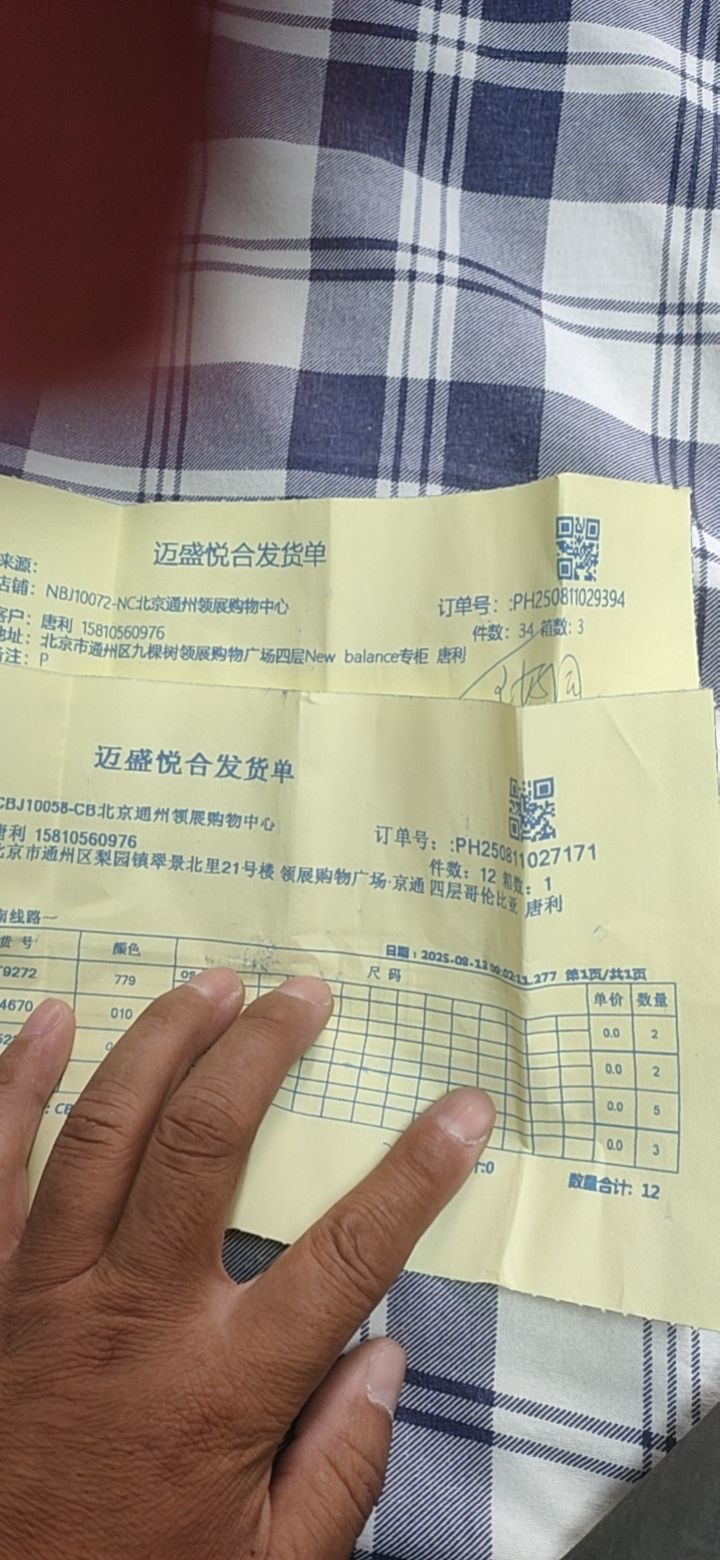 迈盛悦合发货单
来源:
店铺: NBJ10072-NC北京通州领展购物中心
订单号: :PH250811029394
客户: 唐利 15810560976
件数: 34 箱数: 3
地址: 北京市通州区九棵树领展购物广场四层New balance专柜 唐利
备注: P
迈盛悦合发货单
CBJ10058-CB北京通州领展购物中心
订单号: :PH250811027171
唐利 15810560976
件数: 12 箱数: 1
北京市通州区梨园镇翠景北里21号楼 领展购物广场·京通 四层哥伦比亚 唐利
南线路一
日期: 2025-08-13 第1页/共1页
货 号 颜色 尺 码 单价 数量
9272 779 08 0.0 2
4670 010 0.0 2
52 0 0.0 5
0.0 3
: CB
:0 数量合计: 12